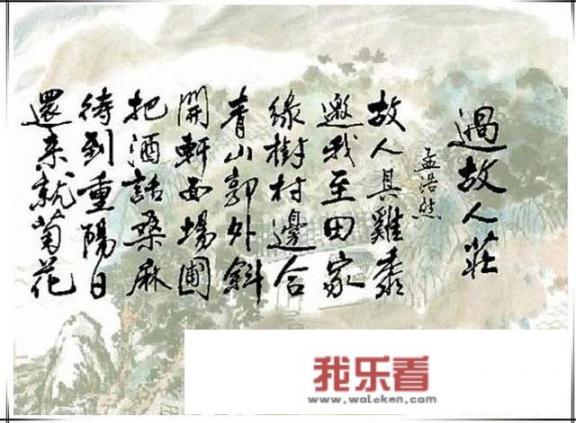 過故人莊
孟浩然
故人具雞黍
邀我至田家
緣樹村邊合
青山郭外斜
開軒面場圃
把酒話桑麻
待到重陽日
還來就菊花
我乐看
www.woleken.com